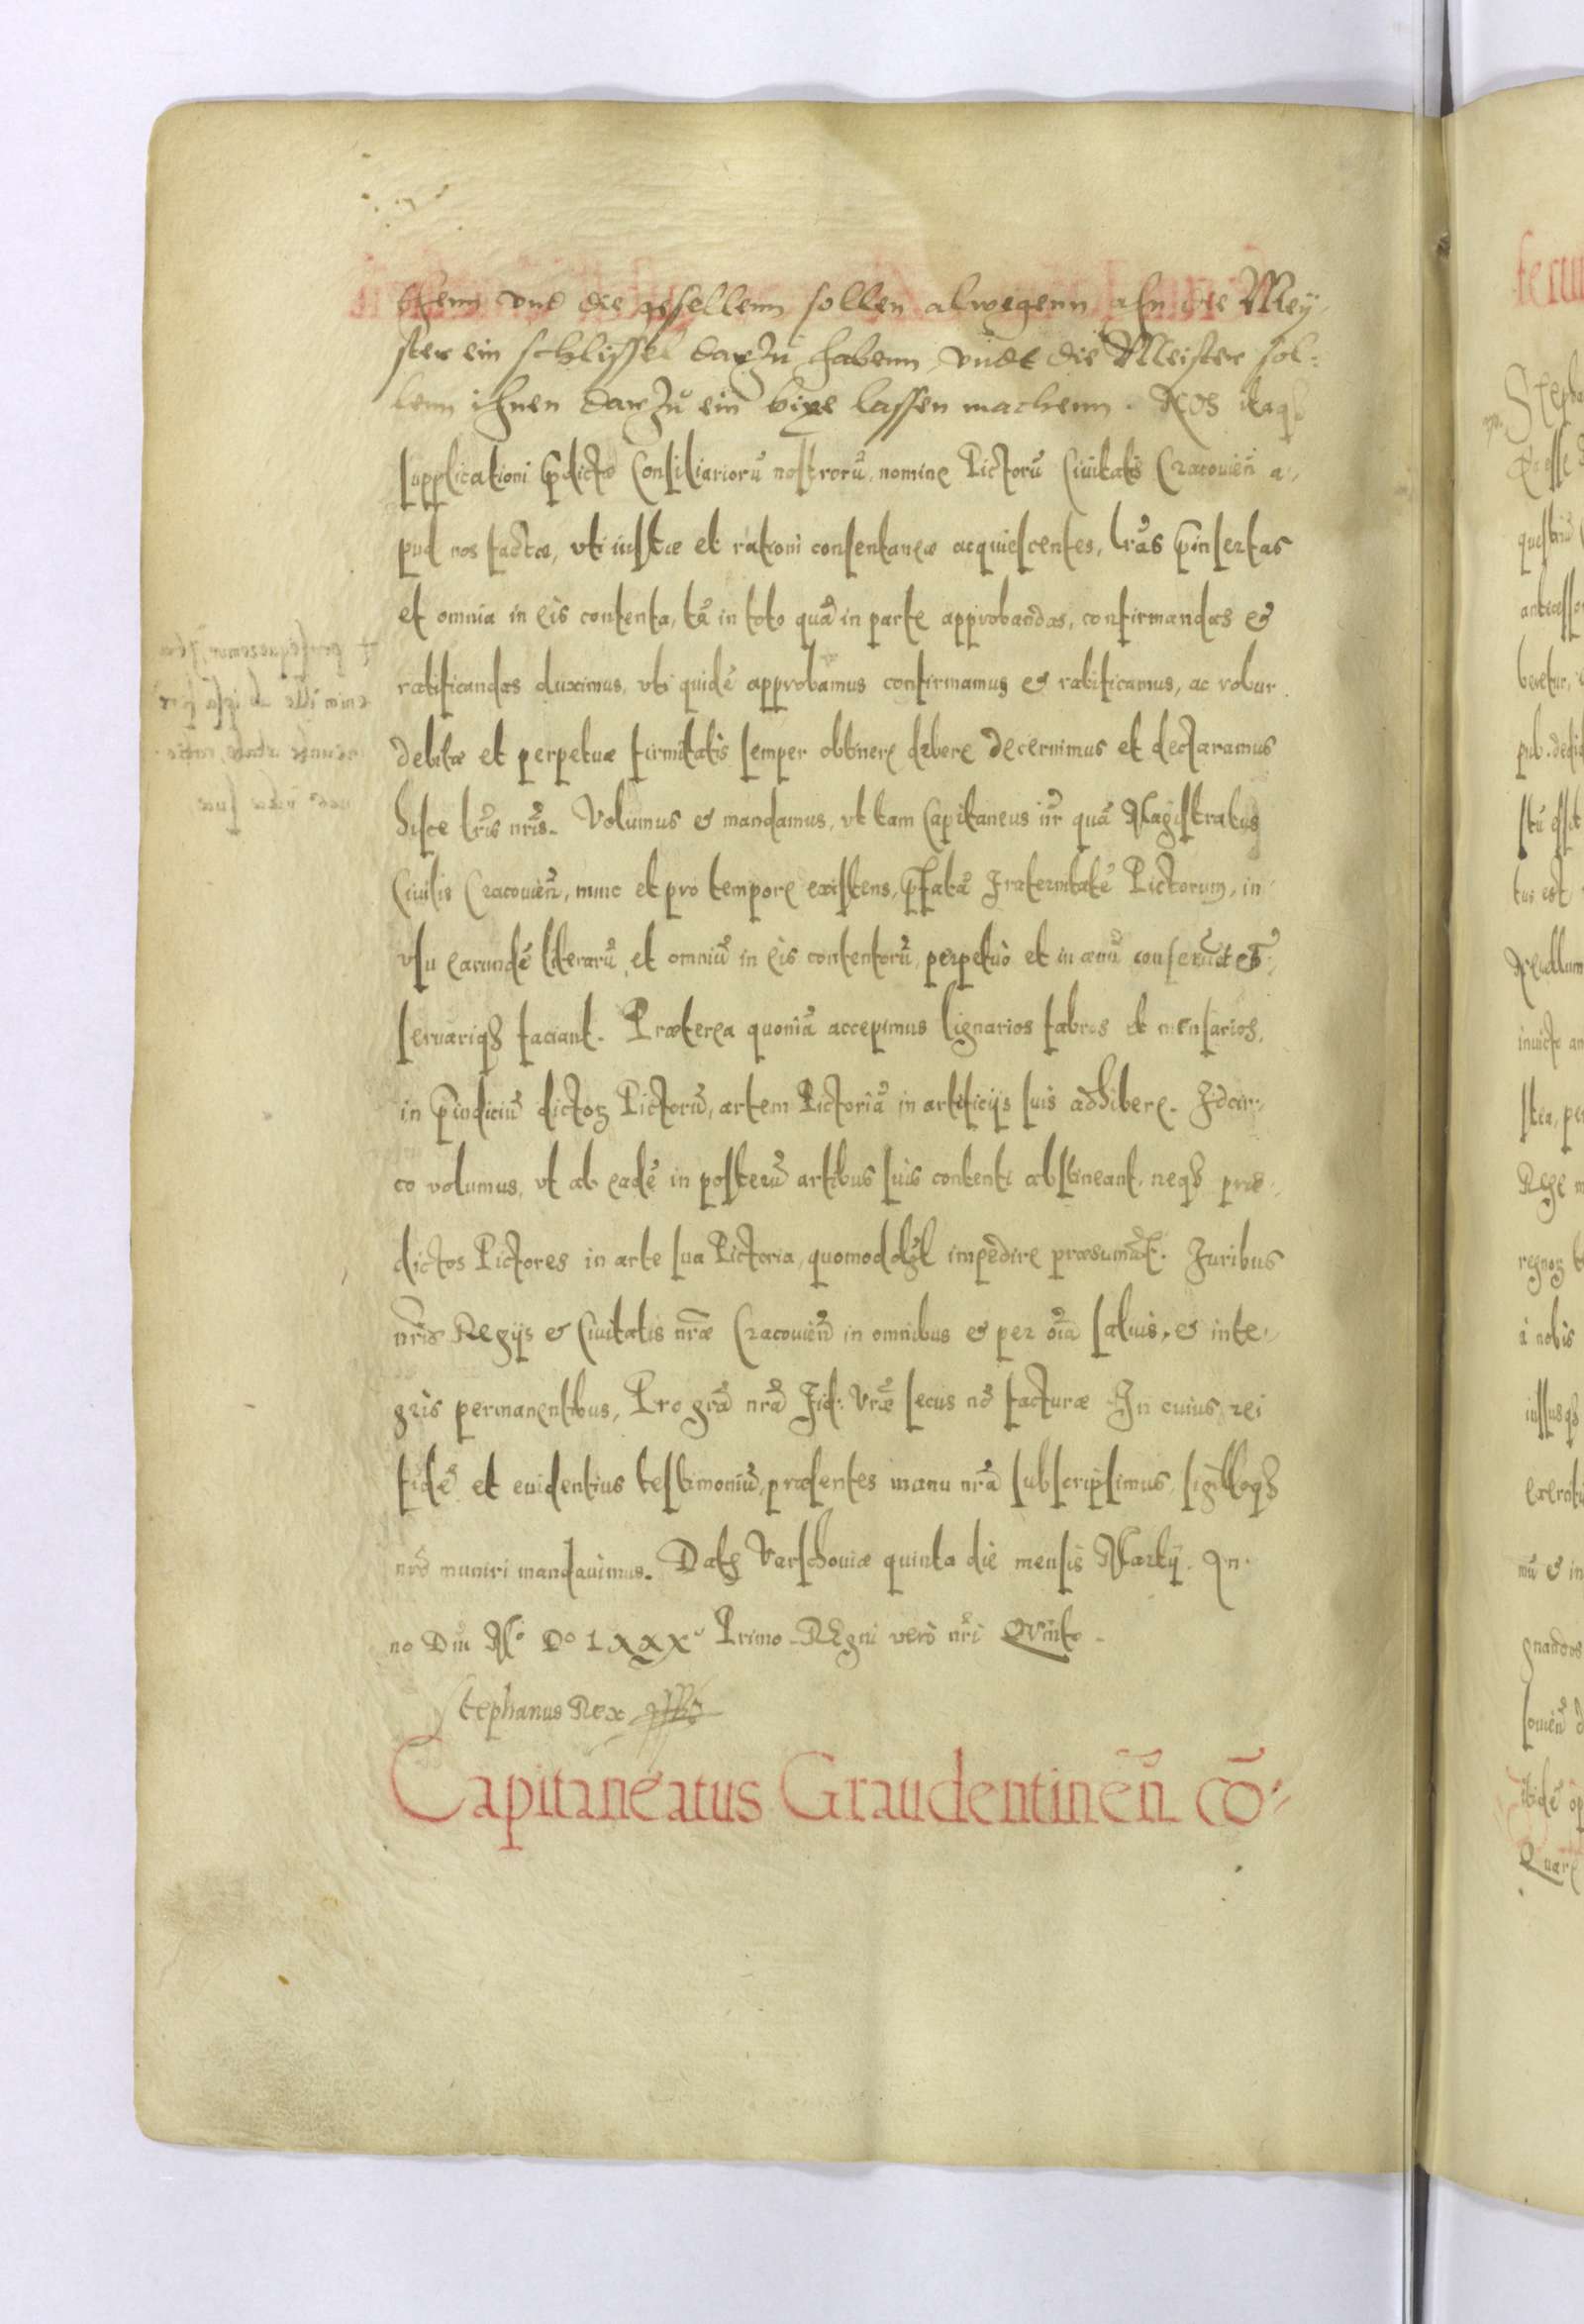 und die gesellenn sollen alwegenn ahn die Mey-
ster ein schlissel darzu habenn, vndt die Meister sol-
lenn ihnen darzu ein bixe lassen machenn. Nos itaqȝ
supplicationi p̃dictæ Consiliariorũ nostrorũ, nomine Pictorũ Ciuitatis Cracouień a-
pud nos factæ, vti iustæ et rationi consentaneæ acquiescentes, lr̃as p̃insertas
et omnia in eis contenta, tã in toto quã in parte approbandas, confirmandas &
ratificandas duximus, vti quidẽ approbamus confirmamus & ratificamus, ac robur
debitæ et perpetuæ firmitatis semper obtinere debere decernimus et declaramus
hisce lr̃is nr̃is. Volumus & mandamus, vt tam Capitaneus nr̃ quã Magistratus
Ciuilis Cracouień, nunc et pro tempore existens, p̃fatã Fraternitatẽ Pictorum, in
vsu earundẽ literarũ, et omniũ in eis contentorũ, perpetuò et in æuũ conseruet
seruariqȝ faciant. Præterea quoniã accepimus lignarios fabros et mensarios,
in p̃iudiciũ dictoꝝ Pictorũ, artem Pictoriã in artificijs suis adhibere. Idcir-
co volumus, vt ab eadẽ in posterũ artibus suis contenti abstineant, neqȝ præ-
dictos Pictores in arte sua Pictoria, quomodolȝt impedire præsumãt. Iuribus
nr̃is Regijs & Ciuitatis nr̃æ Cracouień in omnibus & per oĩa saluis, & inte-
gris permanentibus, Pro grã nr̃a Fid: Vr̃æ secus nõ facturæ In cuius rei
fidẽ et euidentius testimoniũ, præsentes manu nr̃a subscripsimus, sigilloqȝ
nr̃o muniri mandauimus. Datȝ Varschouiæ quinta die mensis Martij. An-
no Dni Mº Dº LXXXº Primo Regni verò nr̃i Qvinto.
Stephanus Rex
Capitaneatus Graudentineñ cõ-